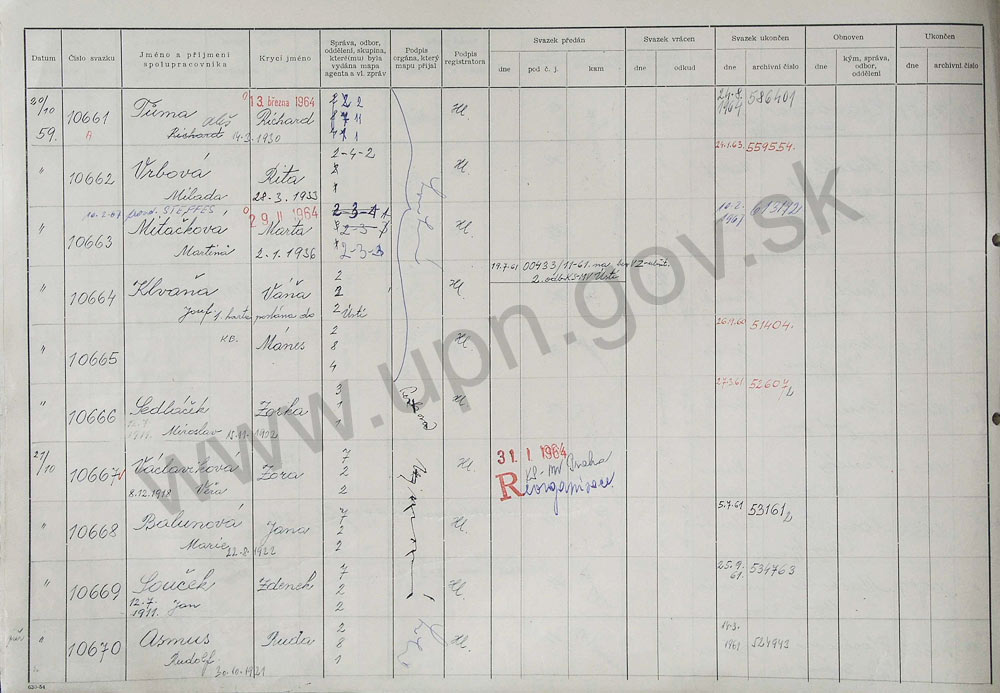 Datum
Číslo svazku
Jméno a příjmení
spolupracovníka
Krycí jméno
Správa, odbor,
oddělení, skupina,
které(mu) byla
vydána mapa
agenta a vl. zpráv
Podpis
orgána, který
mapu přijal
Podpis
registrátora
Svazek předán
dne
pod č. j.
kam
Svazek vrácen
dne
odkud
Svazek ukončen
dne
archivní číslo
Obnoven
dne
kým, správa,
odbor,
oddělení
Ukončen
dne
archivní číslo
20/10 59.
10661
A
Tůma Aleš
Richard 14.3.1930
13. března 1964
Richard
586401
" 10662
Vrbová
Milada
Rita
28.3.1933
2-4-2
24.1.63. 559554.
STEFFES
29 II 1964
" 10663
Mitačková
Martina
Marta
2.1.1936
2-3-3
10.2.
1967
613142
" 10664
Klvaňa
Josef
1. karta poslána do
Váňa
2
2
2 Ústí
19.7.61 00433/11-61. na
2. odb. KS-MV Ústí
" 10665
KB.
Mánes
2
8
4
26.11.60 51404.
" 10666
Sedláčik
Miroslav 15.11.1922
Zorka
27.3.61 52607/2
21/10 10667
Václavíková
8.12.1918 Věra
Zora
7
2
2
31. I. 1964
KS-MV Praha
Reorganisace
" 10668
Balunová
Marie 22.8.1922
Jana
7
2
2
5.7.61 53161/2
" 10669
Souček
12.7.
1911. Jan
Zdenek
7
2
2
25.9.
61. 534763
" 10670
Asmus
Rudolf
30.10.1921
Ruda
2
8
1
18.3.
1961 524943
620-54
www.upn.gov.sk